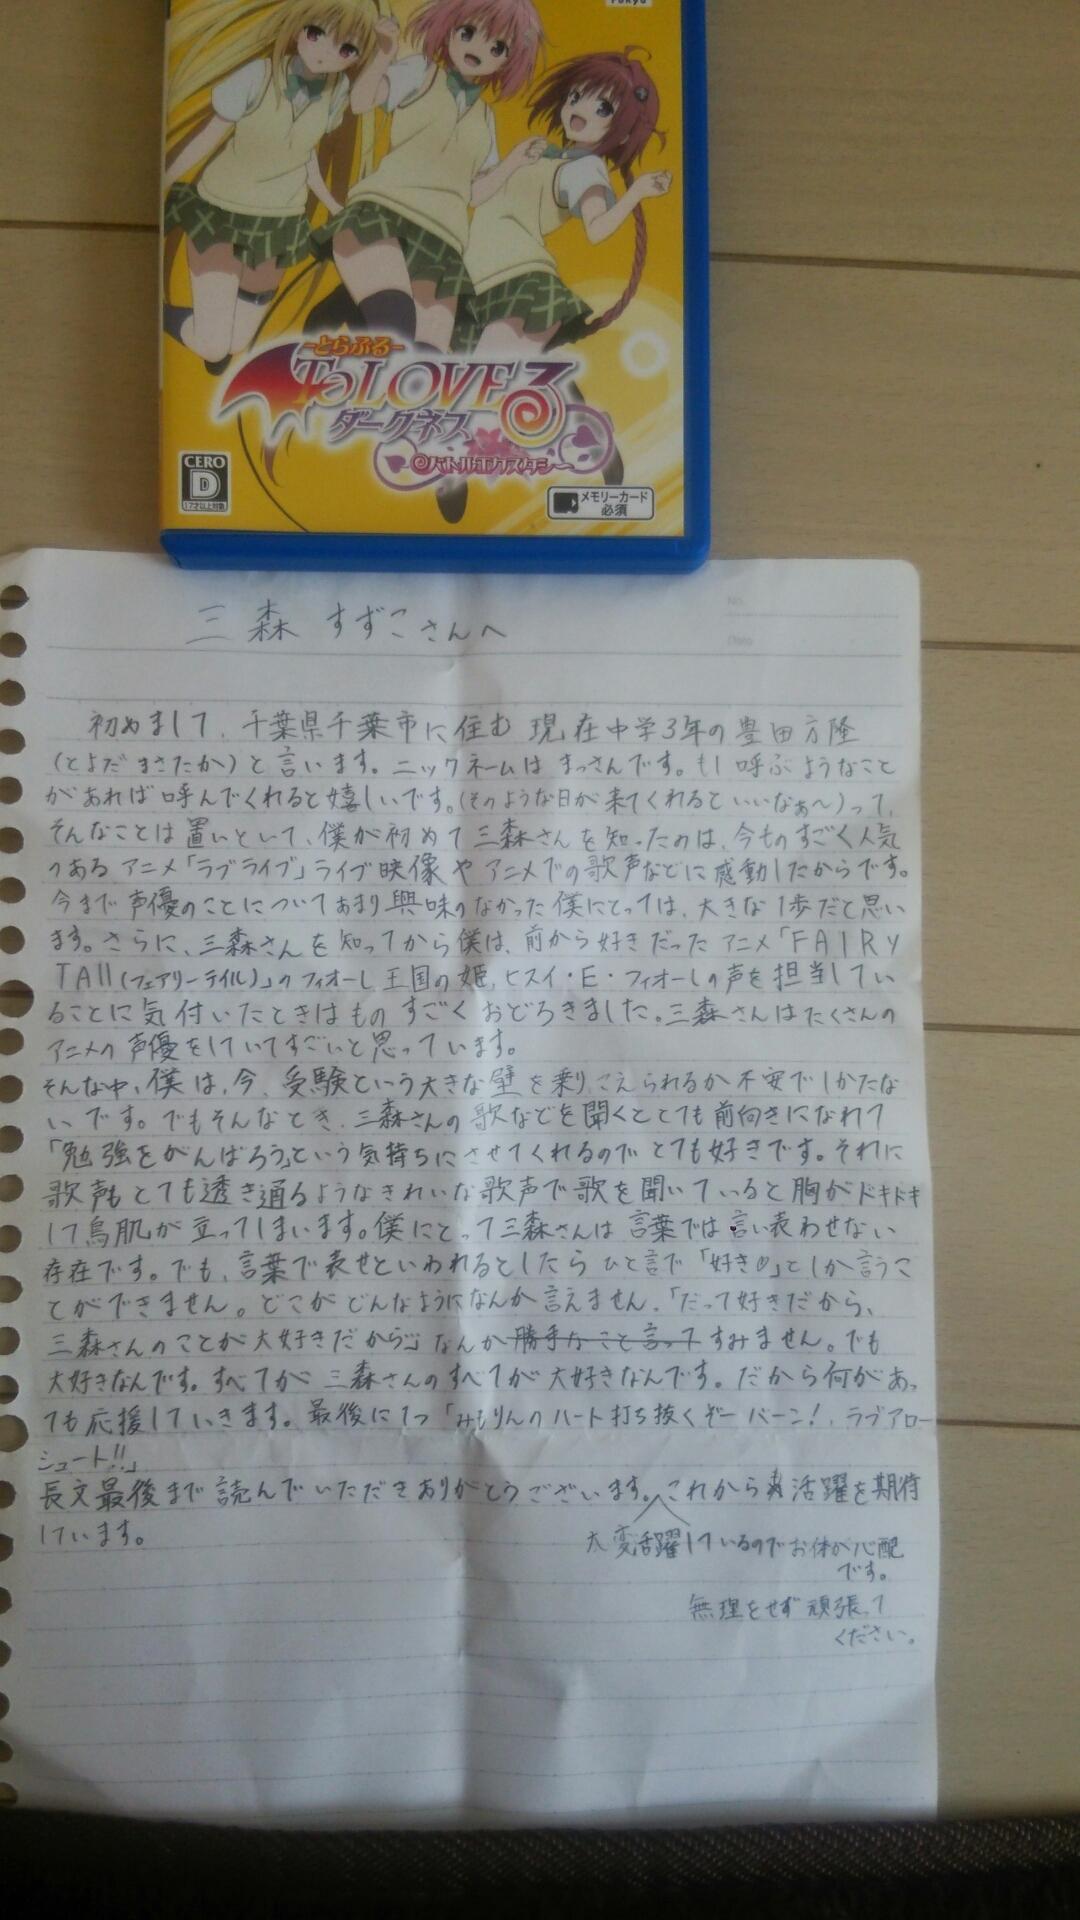 Tokyo
-とらぶる-
To LOVEる
ダークネス
バトルエクスタシー
CERO
D
17才以上対象
メモリーカード
必須
三森 すずこさんへ
初めまして、千葉県千葉市に住む 現在中学3年の豊田方隆
(とよだ まさたか)と言います。ニックネームは まっさんです。もし呼ぶようなこと
があれば 呼んでくれると嬉しいです。(そのような日が来てくれるといいなぁ〜)って、
そんなことは置いといて、僕が初めて三森さんを知ったのは、今ものすごく人気
のあるアニメ「ラブライブ」ライブ映像やアニメでの歌声などに感動したからです。
今まで声優のことについてあまり興味のなかった僕にとっては、大きな1歩だと思い
ます。さらに、三森さんを知ってから僕は、前から好きだったアニメ「FAIRY
TAIl(フェアリーテイル)」のフィオーレ王国の姫、ヒスイ・E・フィオーレの声を担当してい
ることに気付いたときはものすごくおどろきました。三森さんはたくさんの
アニメの声優をしていてすごいと思っています。
そんな中、僕は、今、受験という大きな壁を乗りこえられるか不安でしかたな
いです。でもそんなとき、三森さんの歌などを聞くととても前向きになれて
「勉強をがんばろう」という気持ちにさせてくれるのでとても好きです。それに
歌声もとても透き通るようなきれいな歌声で歌を聞いていると胸がドキドキ
して鳥肌が立ってしまいます。僕にとって三森さんは言葉では言い表わせない
存在です。でも、言葉で表せといわれるとしたらひと言で「好き♡」としか言うこ
とができません。どこがどんなようになんか言えません。「だって好きだから、
三森さんのことが大好きだから」なんか勝手なこと言ってすみません。でも
大好きなんです。すべてが三森さんのすべてが大好きなんです。だから何があっ
ても応援していきます。最後に1つ「みもりんのハート打ち抜くぞーバーン!、ラブアロー
シュート!!」
長文最後まで読んでいただきありがとうございます。これからも活躍を期待
しています。
大変活躍しているのでお体が心配
です。
無理をせず頑張って
ください。